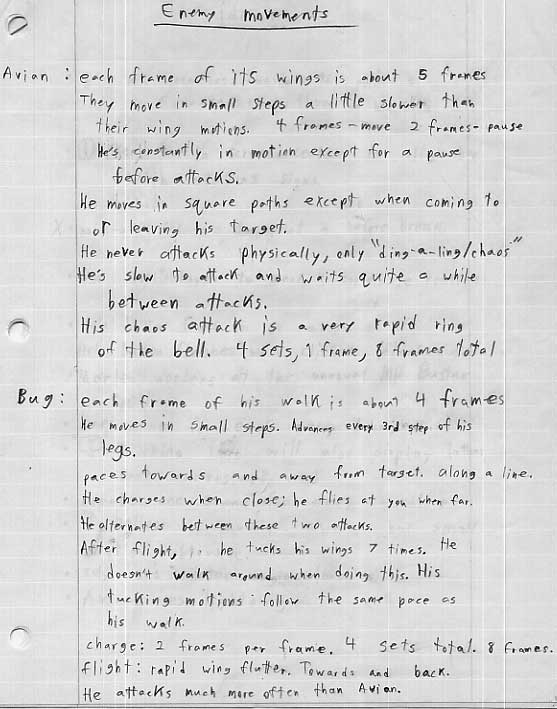 Enemy movements
Avian : each frame of its wings is about 5 frames
They move in small steps a little slower than
their wing motions. 4 frames - move 2 frames - pause
He's constantly in motion except for a pause
before attacks.
He moves in square paths except when coming to
or leaving his target.
He never attacks physically, only "ding-a-ling/chaos"
He's slow to attack and waits quite a while
between attacks.
His chaos attack is a very rapid ring
of the bell. 4 sets, 1 frame, 8 frames total
Bug : each frame of his walk is about 4 frames
He moves in small steps. Advances every 3rd step of his
legs.
paces towards and away from target. along a line.
He charges when close; he flies at you when far.
He alternates between these two attacks.
After flight, he tucks his wings 7 times. He
doesn't walk around when doing this. His
tucking motions follow the same pace as
his walk.
charge: 2 frames per frame. 4 sets total. 8 frames.
flight: rapid wing flutter. Towards and back.
He attacks much more often than Avian.